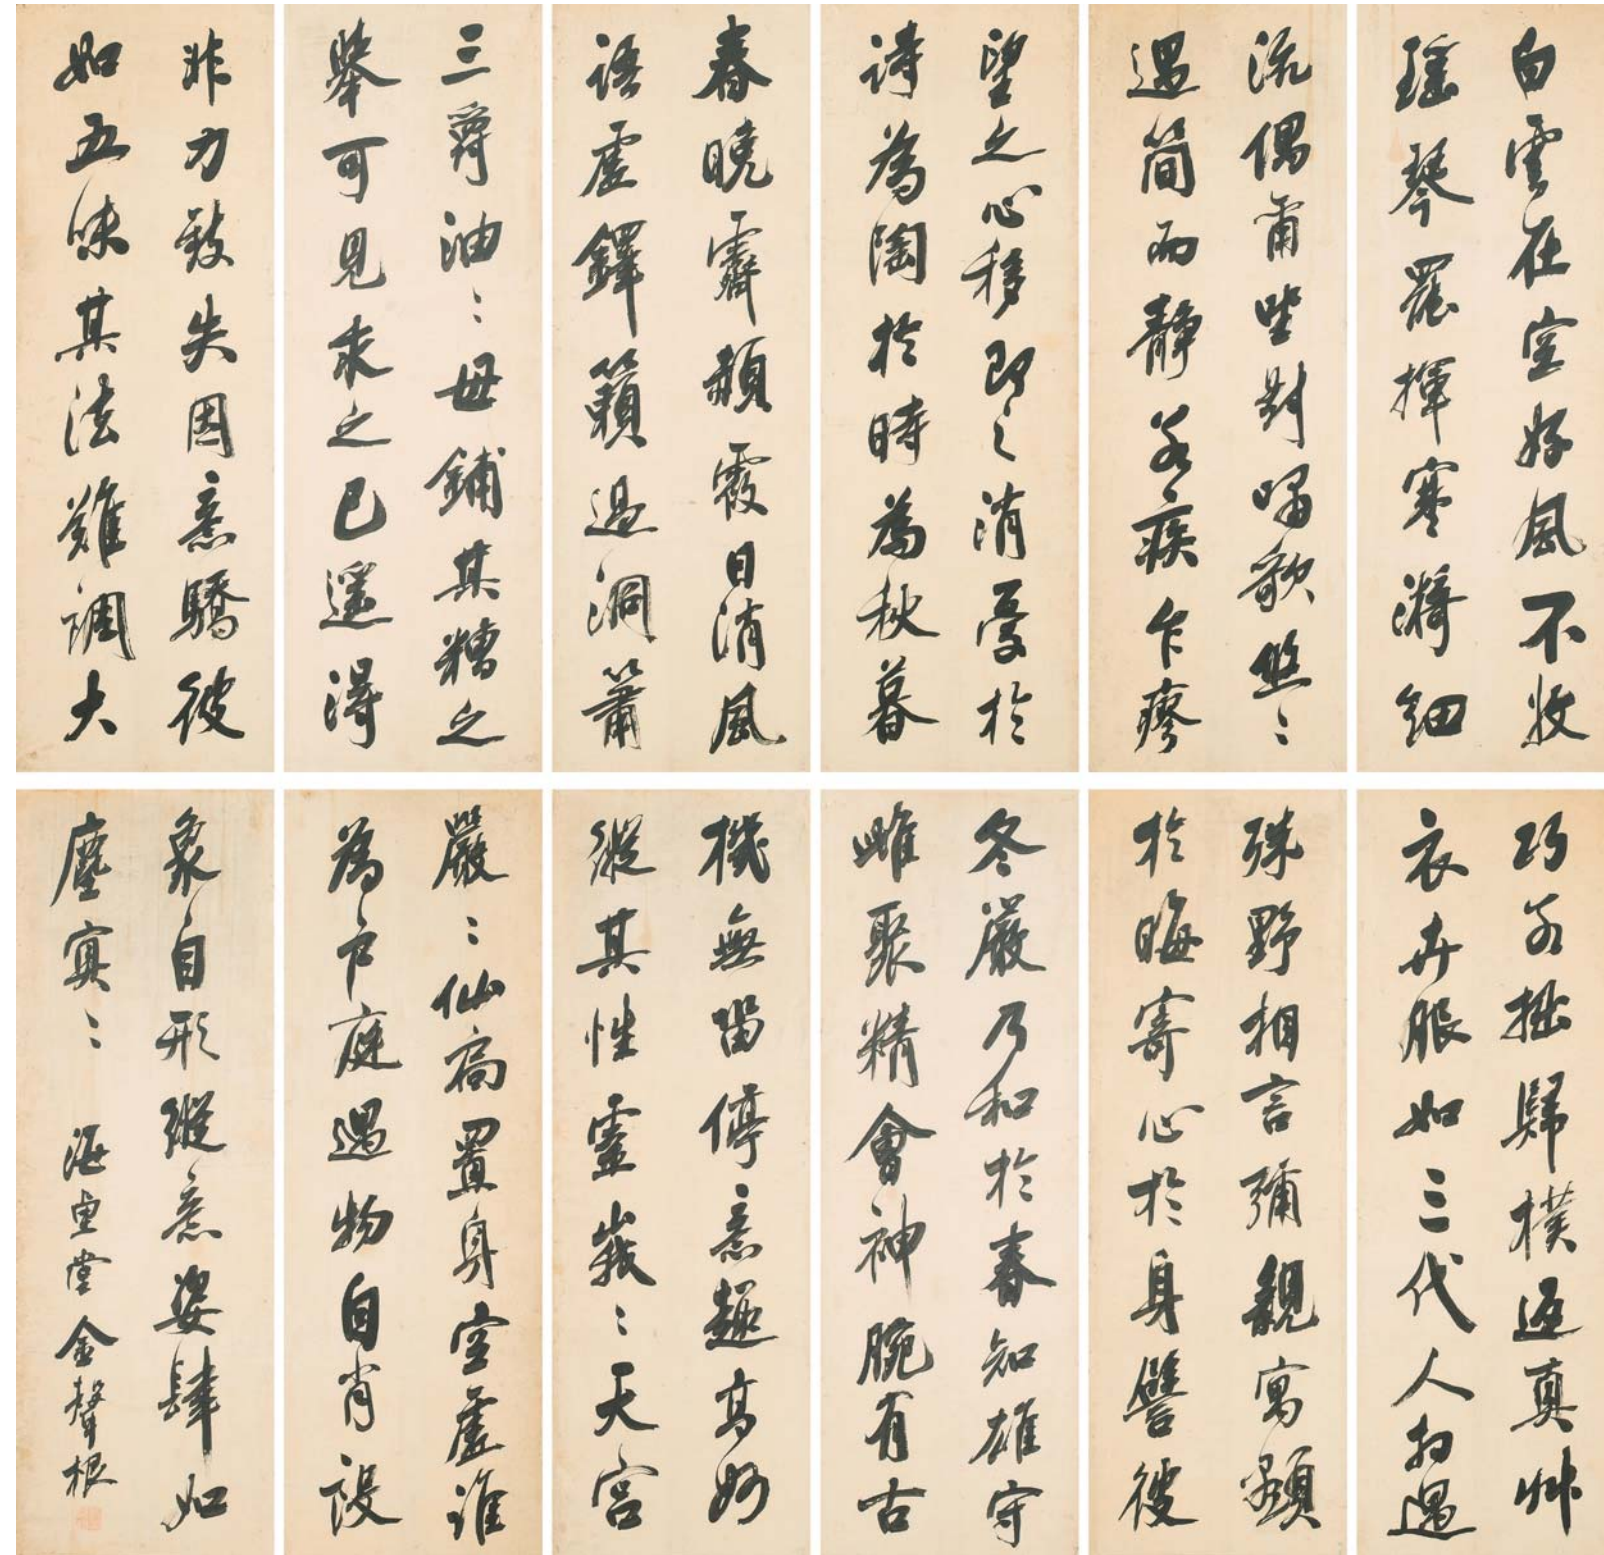 白雲在空好風不收
瑤琴罷揮寒漪細
流偶爾坐對嘯歌悠〻
遇簡而靜若疾乍瘳
望之心移即之消憂於
詩為陶於時為秋暮
春曉霽頳霞日消風
語虛鐸籟過洞簫
三爵油〻毋餔其糟之
舉可見求之已遙得
非力致失因意驕彼
如五味其法難調大
巧若拙歸樸返真艸
衣卉服如三代人相遇
殊野相言彌親寓顯
於晦寄心於身譬彼
冬嚴乃和於春知雄守
雌聚精會神腕有古
機無留停意趣高妙
縱其性靈峩〻天宮
嚴〻仙扃置身空虛誰
為戶庭遇物自肖設
象自形縱意姿肆如
塵冥〻 海堂金聲根